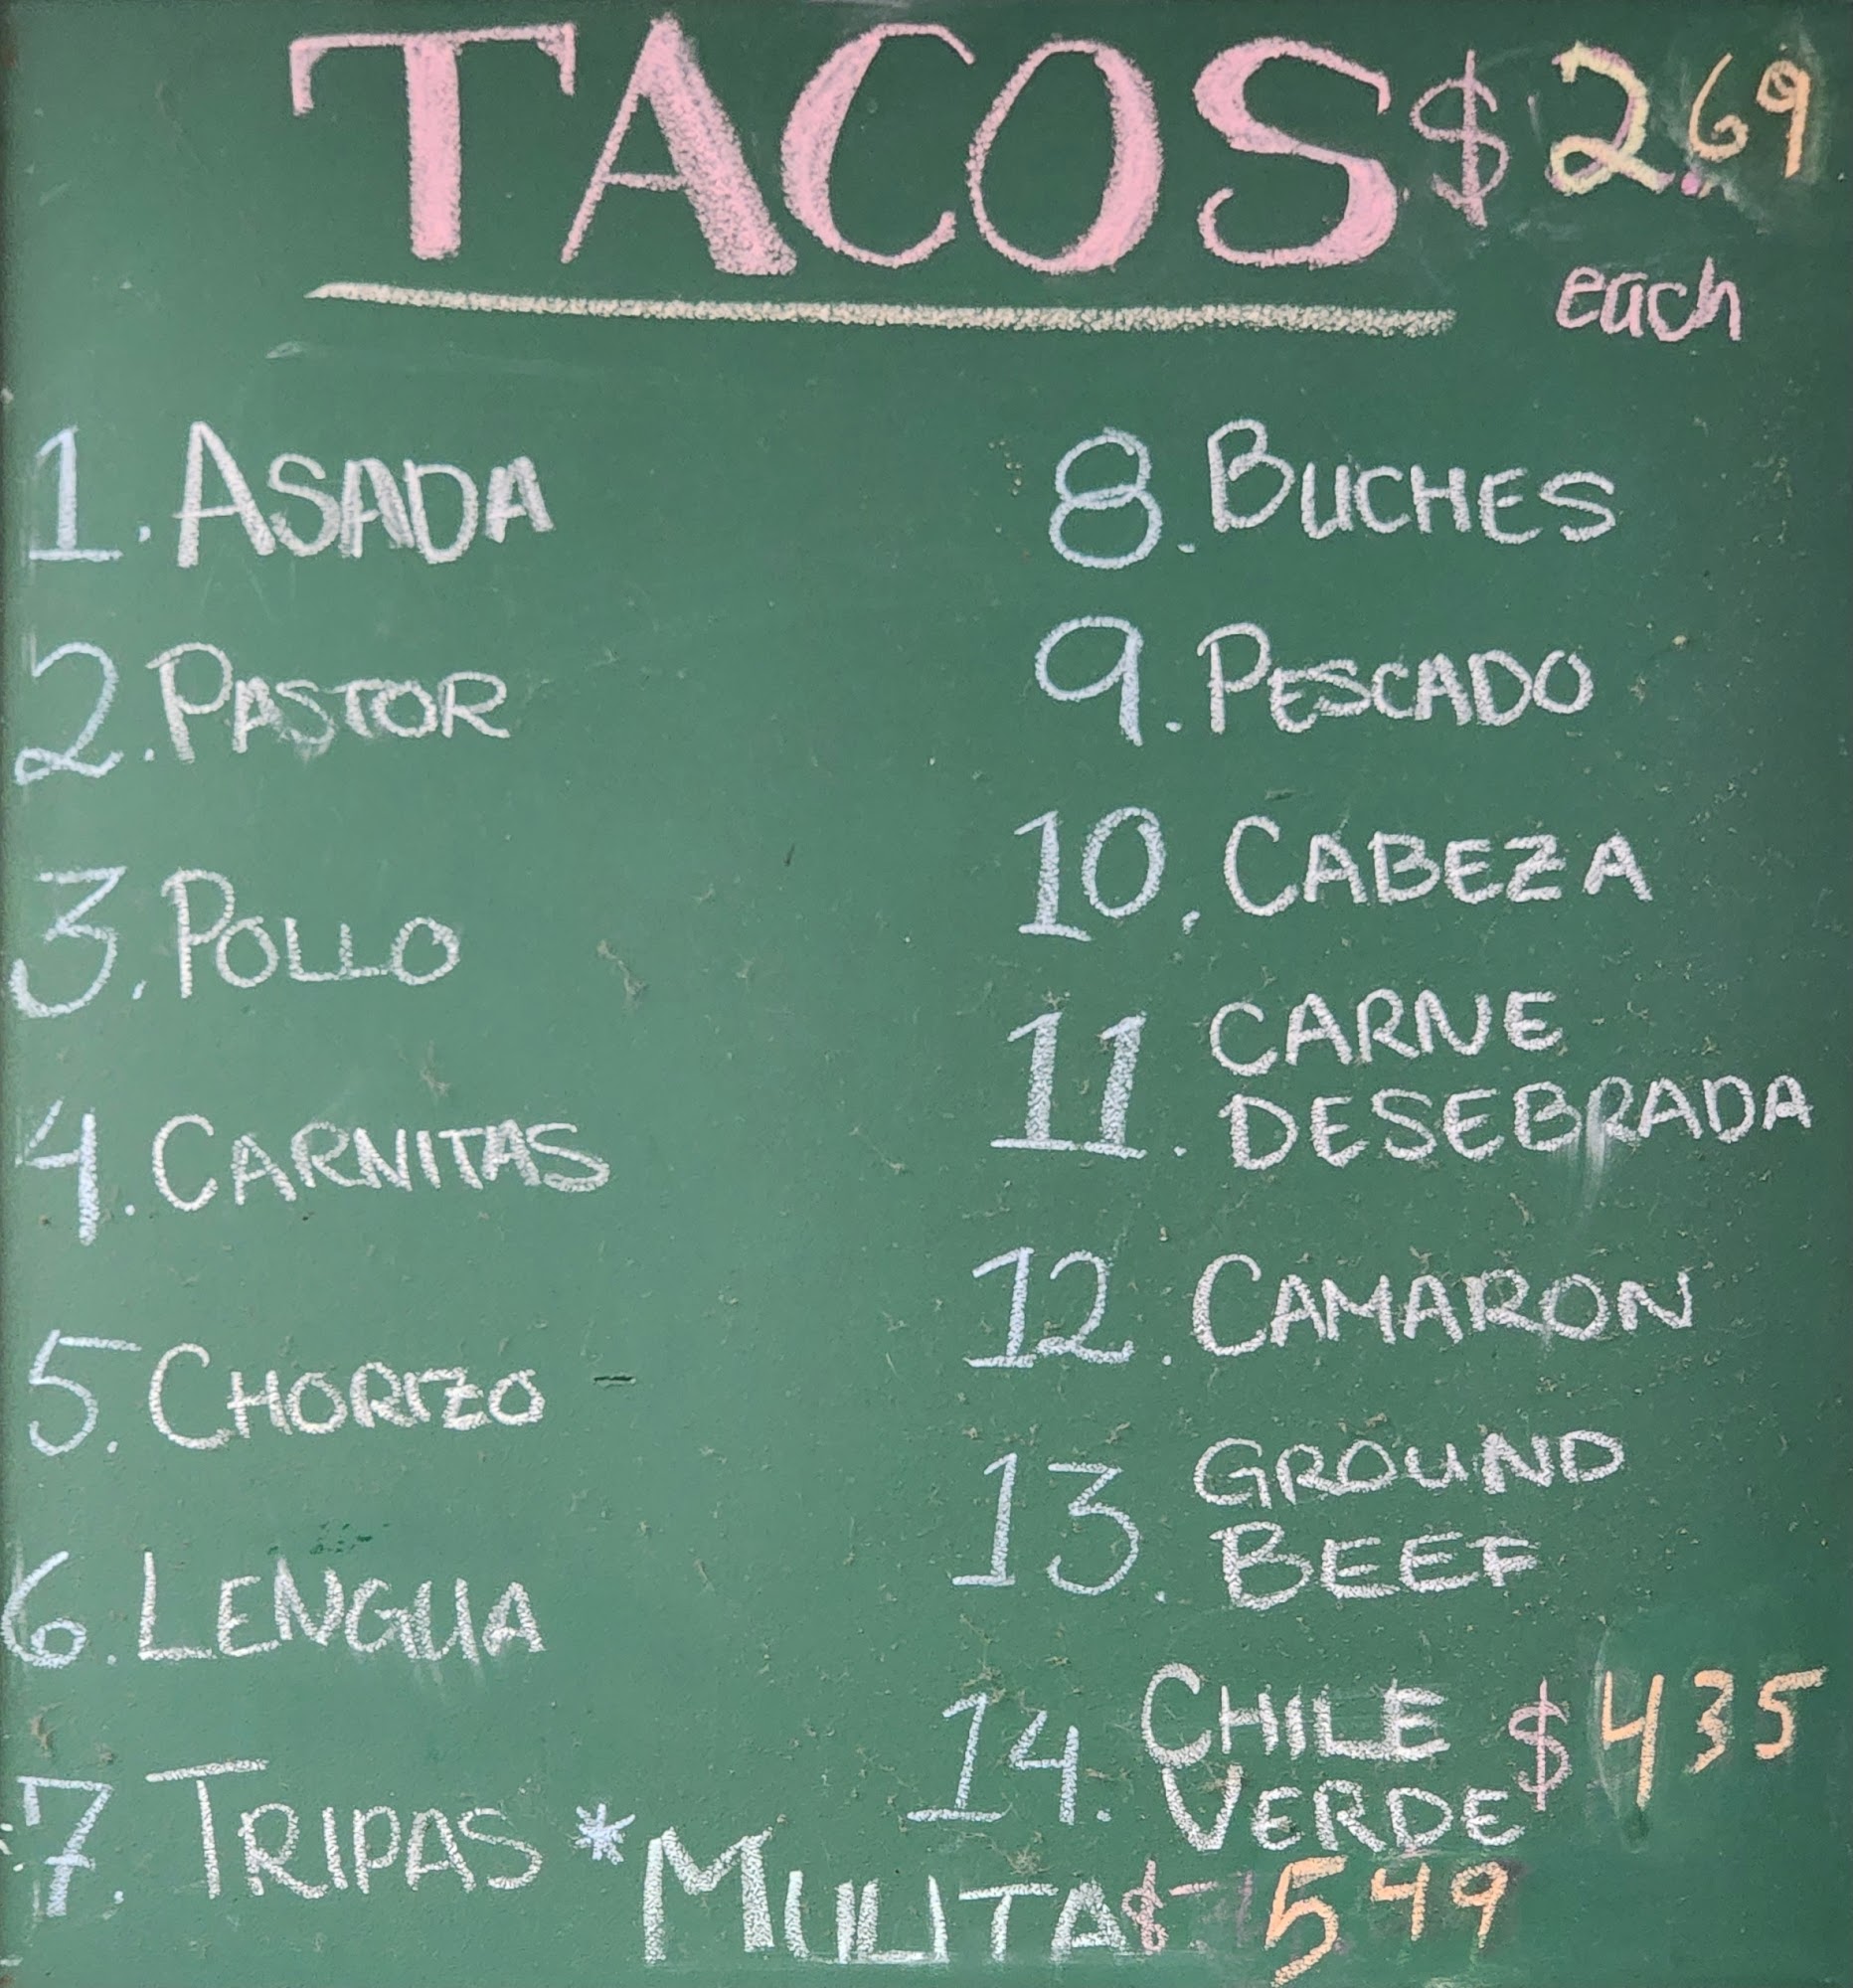 TACOS $2.69
each
1. ASADA
2. PASTOR
3. POLLO
4. CARNITAS
5. CHORIZO
6. LENGUA
7. TRIPAS
8. BUCHES
9. PESCADO
10. CABEZA
11. CARNE
DESEBRADA
12. CAMARON
13. GROUND
BEEF
14. CHILE $435
VERDE
*MULITA $549